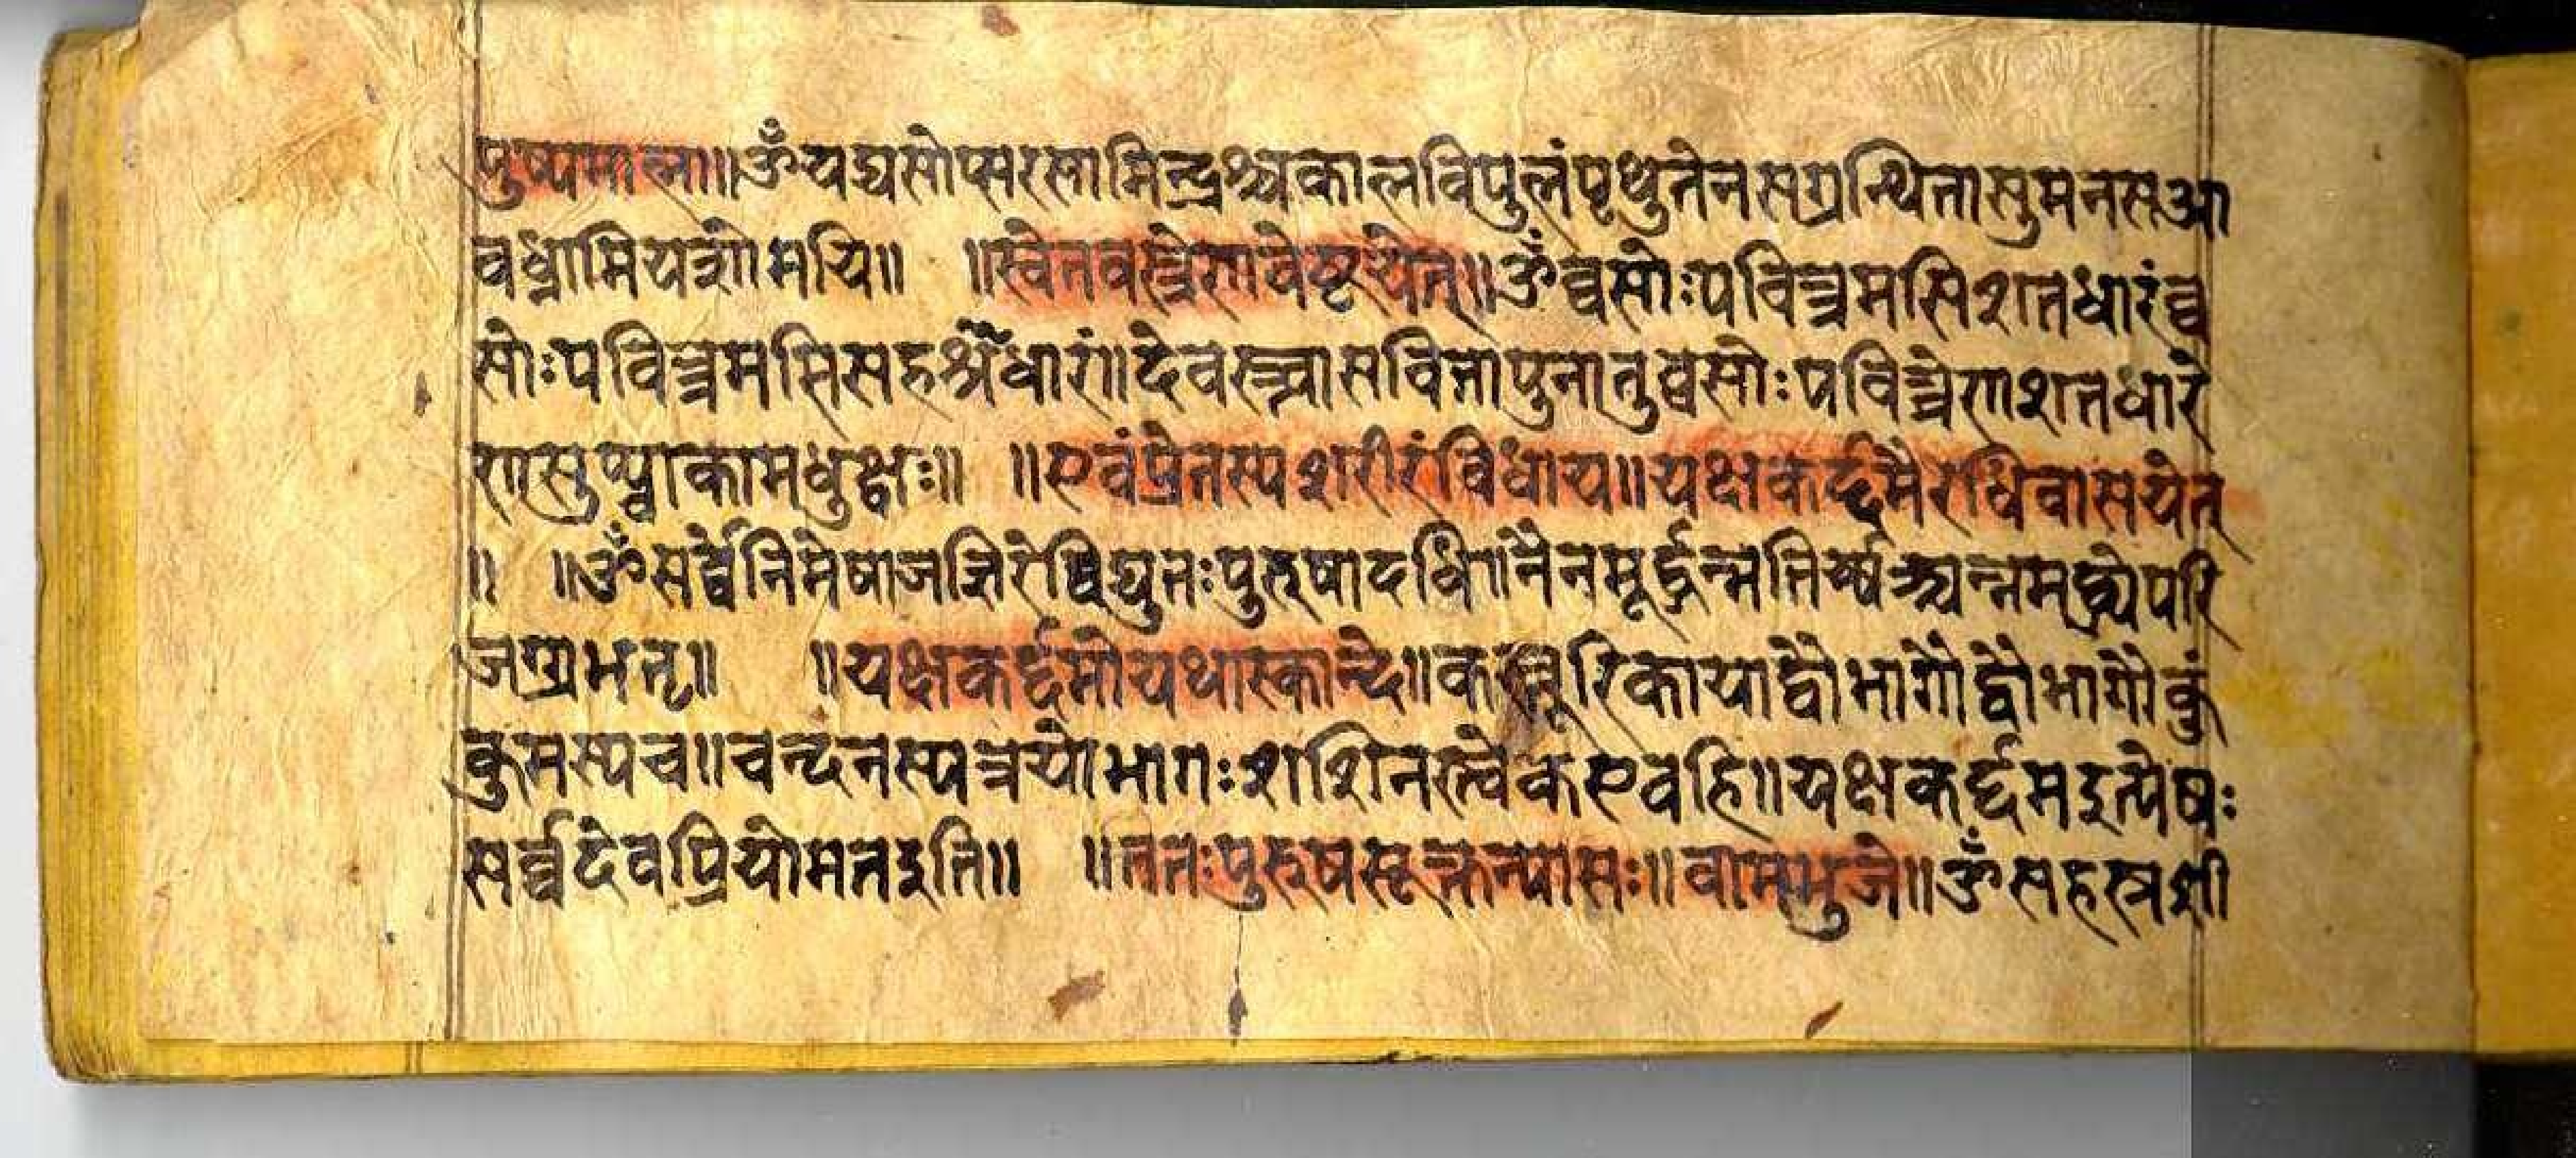 पुष्पमाला॥ॐयद्यसोप्सरसामिन्द्रश्चकालविपुलंपृथुतेनसग्रन्थितासुमनसआ
वध्नामियशोमयि॥ ॥स्वेतवस्त्रेणवेष्टयेत्॥ॐव्वसोःपवित्रमसिशतधारंव्व
सोःपवित्रमसिसहश्रँधारं॥देवस्त्वासवितापुनातुव्वसोःपवित्रेणशतधारे
णसुप्प्वाकामधुक्षः॥ ॥एवंप्रेतस्यशरीरंविधाय॥यक्षकर्द्दमैरधिवासयेत्
॥ ॥ॐसर्व्वेनिमेषाजज्ञिरेव्विद्युतःपुरुषादधि॥नैनमूर्द्ध्वन्नतिर्य्यञ्चन्नमद्ध्येपरि
जग्रभत्॥ ॥यक्षकर्द्दमोयथास्कान्दे॥कस्तूरिकायाद्वौभागौद्वौभागौकुं
कुमस्यच॥चन्दनस्यत्रयोभागःशशिनस्त्वेकएवहि॥यक्षकर्द्दमइत्येषः
सर्व्वदेवप्रियोमतइति॥ ॥ततःपुरुषसूक्तन्यासः॥वामभुजे॥ॐसहस्त्रशी